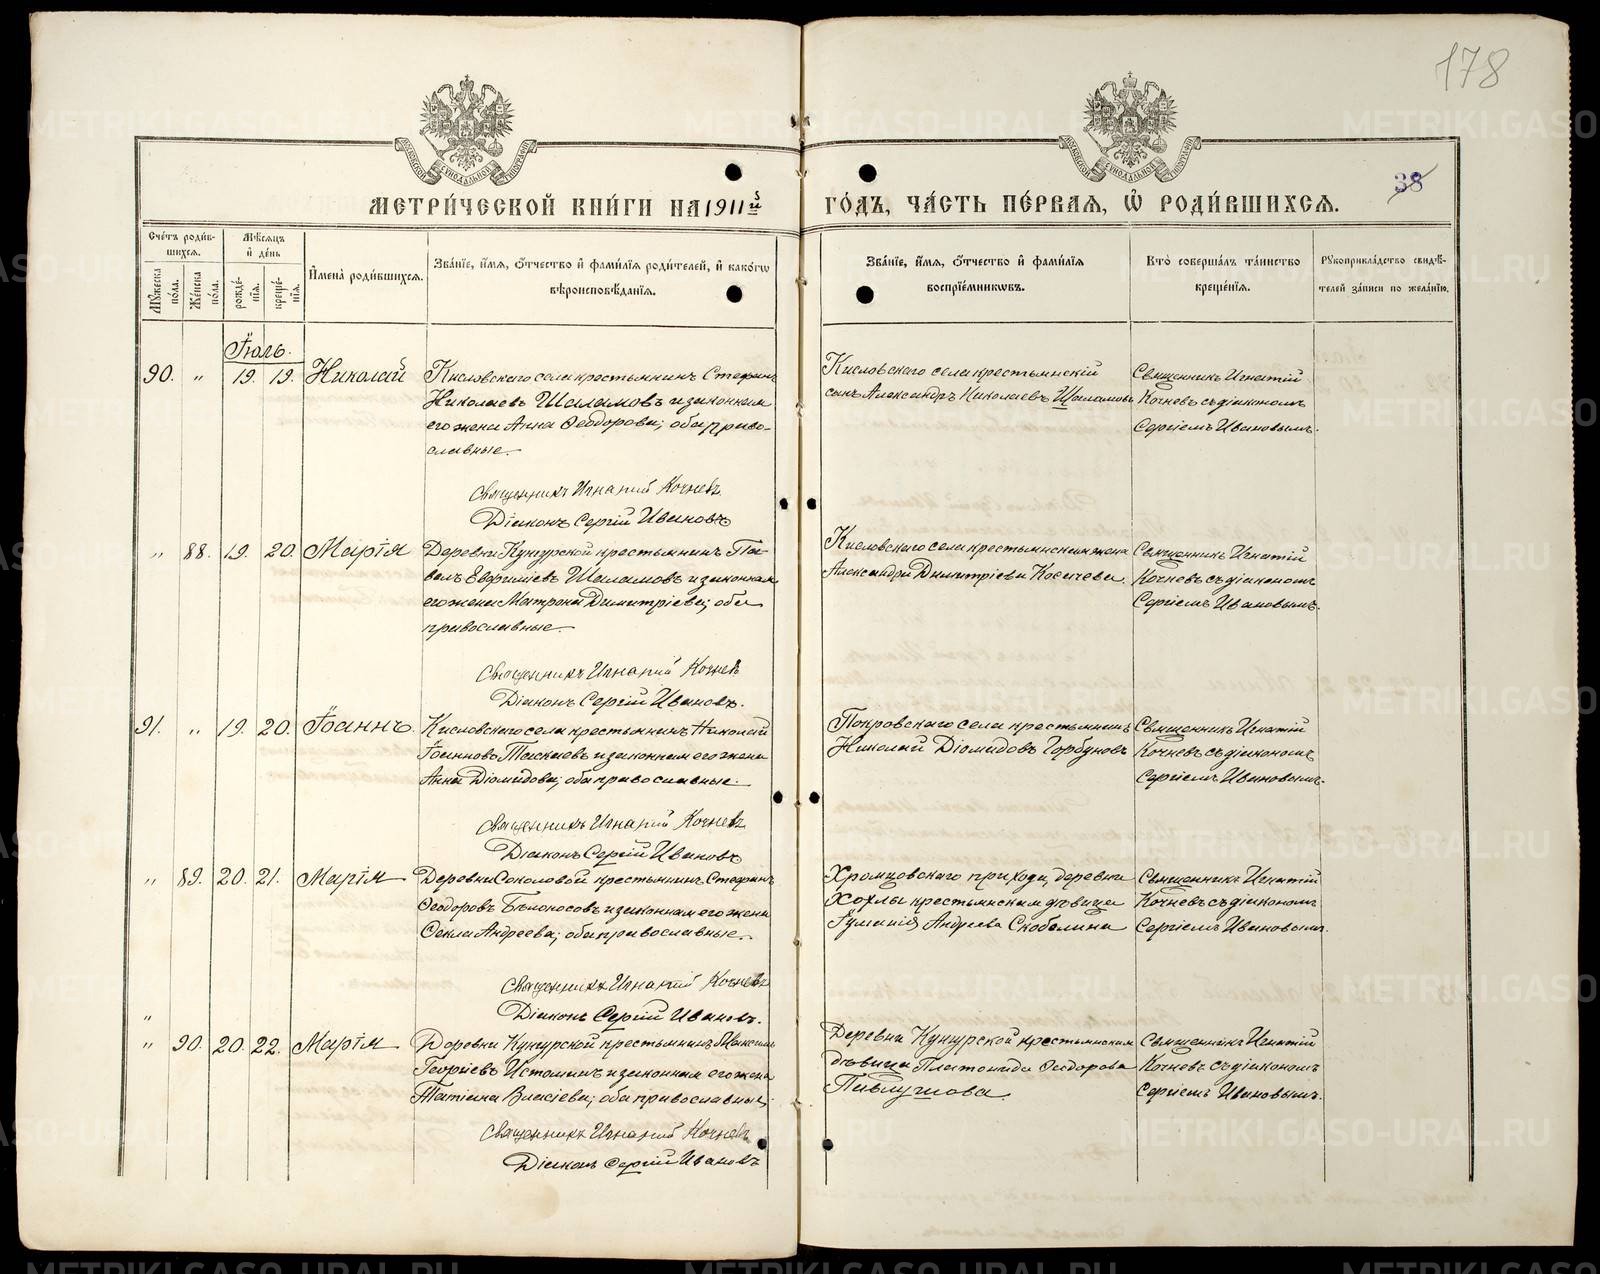 178
38
МЕТРИ́ЧЕСКОЙ КНИ́ГИ НА 1911й ГО́ДЪ, ЧА́СТЬ ПЕ́РВАЯ, Ѽ РОДИ́ВШИХСЯ.
Сче́тъ роди́в-
шихся.
Мꙋ́жеска по́ла.
Же́нска по́ла.
Мѣ́сяцъ
и҆ де́нь
рожде́-
нїя.
креще́-
нїя.
И҆мена̀ роди́вшихся.
Зва́нїе, и҆́мя, ѻ҆́тчество и҆ фами́лїя роди́телей, и҆ како́гѡ
вѣроисповѣ́данїя.
Зва́нїе, и҆́мя, ѻ҆́тчество и҆ фами́лїя
воспрїе́мникѡвъ.
Кто̀ соверша́лъ та́инство
креще́нїя.
Рꙋкоприкла́дство свидѣ́-
телей за́писи по жела́нїю.
Іюль.
90. „ 19. 19. Николай
Кисловскаго села крестьянинъ Стефанъ
Николаевъ Шаламовъ и законная
его жена Анна Ѳеодорова; оба право-
славные.
Священникъ Игнатий Кочневъ
Діаконъ Сергій Ивановъ
Кисловскаго села крестьянскій
сынъ Александръ Николаевъ Шаламовъ
Священникъ Игнатій
Кочневъ съ діакономъ
Сергіемъ Ивановымъ.
„ 88. 19. 20. Марія
Деревни Кунгурской крестьянинъ Па-
велъ Евфимiевъ Шаламовъ и законная
его жена Матрона Димитріева; оба
православные.
Священникъ Игнатий Кочневъ
Діаконъ Сергій Ивановъ.
Кисловскаго села крестьянская жена
Александра Димитріева Косачева.
Священникъ Игнатій
Кочневъ съ діакономъ
Сергіемъ Ивановымъ.
91. „ 19. 20. Іоаннъ.
Кисловскаго села крестьянинъ Николай
Іоанновъ Таскаевъ и законная его жена
Анна Діомидова; оба православные.
Священникъ Игнатий Кочневъ
Діаконъ Сергій Ивановъ
Покровскаго села крестьянинъ
Николай Діомидовъ Горбуновъ
Священникъ Игнатій
Кочневъ съ діакономъ
Сергіемъ Ивановымъ.
„ 89. 20. 21. Марія
Деревни Соколовой крестьянинъ Стефанъ
Ѳеодоровъ Бѣлоносовъ и законная его жена
Ѳекла Андреева; оба православные.
Священникъ Игнатий Кочневъ
Діаконъ Сергій Ивановъ.
Хромцовскаго прихода, деревни
Хохлы крестьянская дѣвица
Іуманія Андреева Скобелина
Священникъ Игнатій
Кочневъ съ діакономъ
Сергіемъ Ивановымъ.
„
„ 90. 20. 22. Марія
Деревни Кунгурской крестьянинъ Максимъ
Георгіевъ Истоминъ и законная его жена
Татіана Власіева; оба православные.
Священникъ Игнатий Кочневъ
Діаконъ Сергій Ивановъ
Деревни Кунгурской крестьянская
дѣвица Платонида Ѳеодорова
Павлушова.
Священникъ Игнатій
Кочневъ съ діакономъ
Сергіемъ Ивановымъ.
METRIKI.GASO-URAL.RU